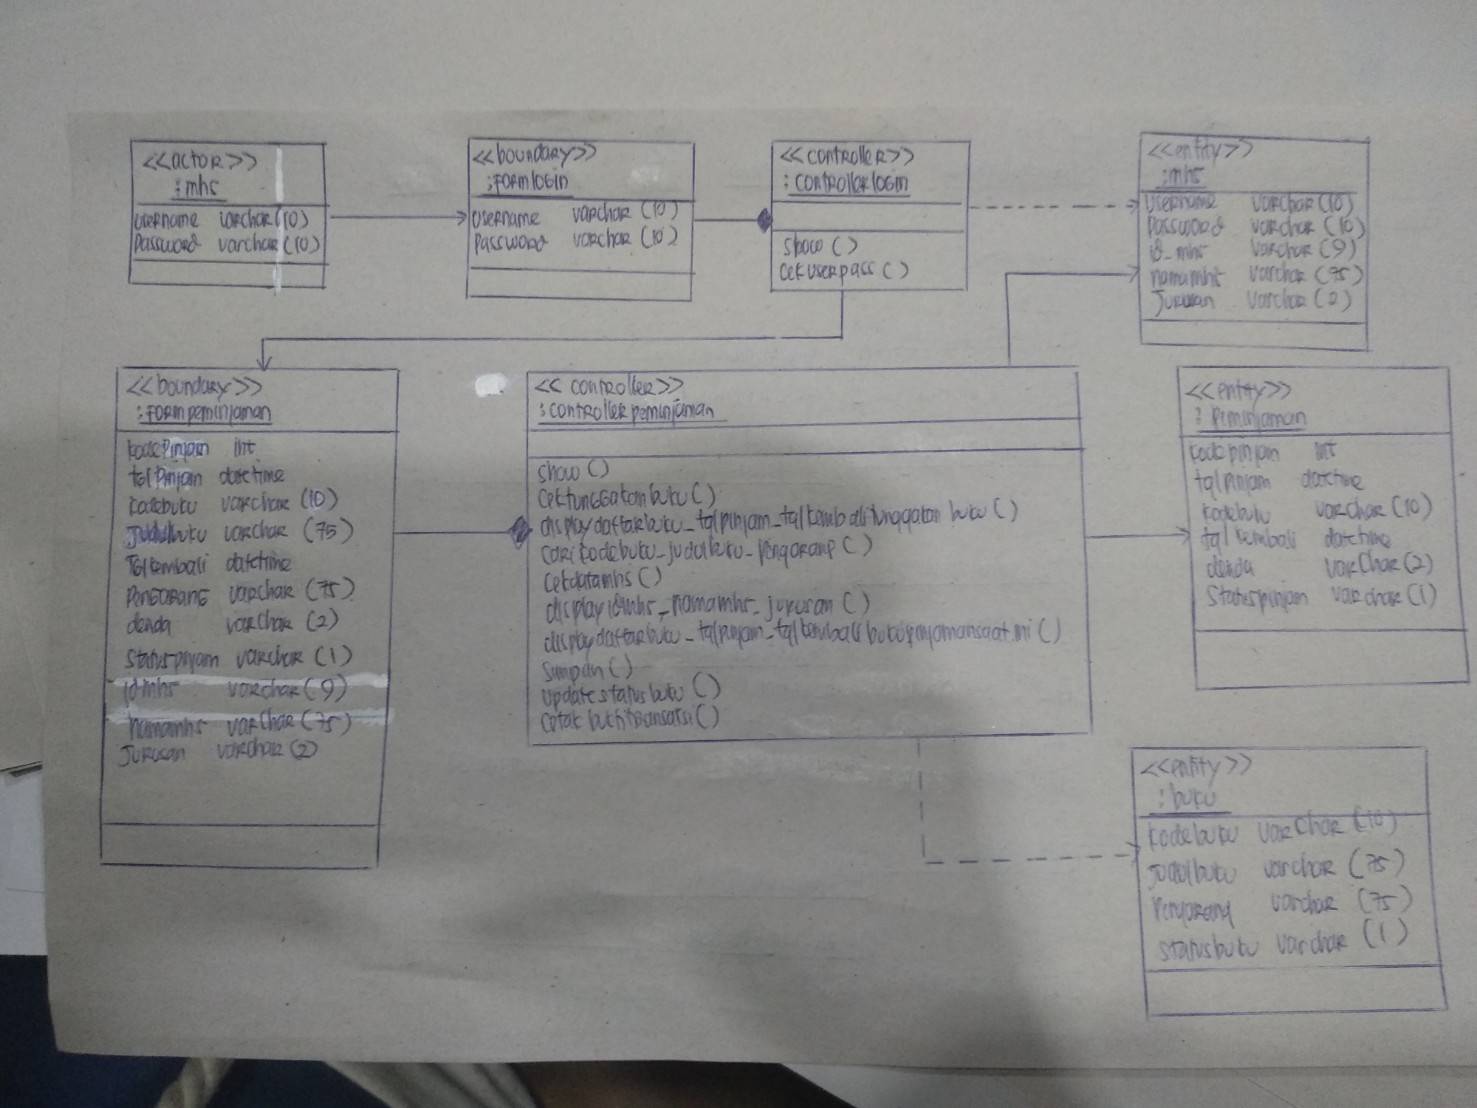 <<actor>>
:mhs
username varchar(10)
Password varchar(10)
<<boundary>>
:Formlogin
username varchar (10)
Password varchar (10)
<<controller>>
:controllerlogin
show ()
cekuserpass ()
<<entity>>
:mhs
username varchar (10)
Password varchar (10)
id_mhs varchar (9)
namamhs varchar (75)
Jurusan varchar (2)
<<boundary>>
:Formpeminjaman
kodepinjam int
tglpinjam datetime
kodebuku varchar (10)
Judulbuku varchar (75)
Tglkembali datetime
Pengarang varchar (75)
denda varchar (2)
Statuspinjam varchar (1)
idmhs varchar (9)
namamhs varchar (75)
Jurusan varchar (2)
<< controller>>
:controllerpeminjaman
show ()
cektunggakanbuku ()
displaydaftarbuku_tglpinjam_tglkembalitunggakan buku ()
carikodebuku_judulbuku_pengarang ()
cekdatamhs ()
displayidmhs_namamhs_jurusan ()
displaydaftarbuku_tglpinjam_tglkembalibukupinjamansaatini ()
simpan ()
updatestatusbuku ()
cetak buktitransaksi ()
<<entity>>
: Peminjaman
kodepinjam int
tglpinjam datetime
kodebuku varchar (10)
tglkembali datetime
denda varchar (2)
Statuspinjam varchar (1)
<<entity>>
:buku
kodebuku varchar (10)
Judulbuku varchar (75)
Pengarang varchar (75)
statusbuku varchar (1)